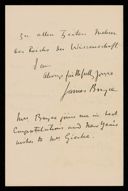 zu allen Zeiten Mehrer
des Reichs der Wissenschaft
I am
always faithfully yours
James Bryce
Mrs Bryce joins me in kind
Congratulations and New Year's
wishes to Mrs Gierke.